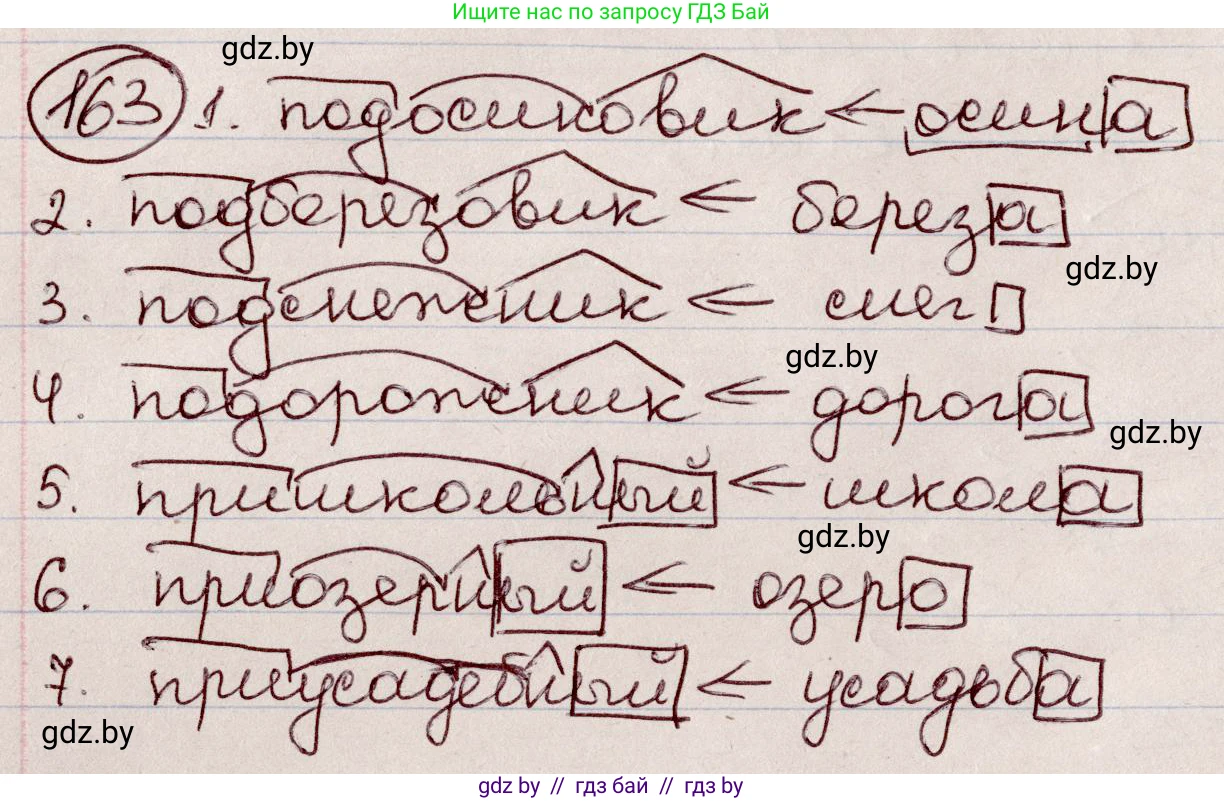 Ищите нас по запросу ГДЗ Бай
gdz.by
163 1. подосиновик ← осина
2. подберезовик ← береза
gdz.by
3. подснежник ← снег
gdz.by
4. подорожник ← дорога
gdz.by
5. пришкольный ← школа
gdz.by
6. приозерный ← озеро
7. приусадебный ← усадьба
gdz.by
gdz by // гдз бай // гдз by